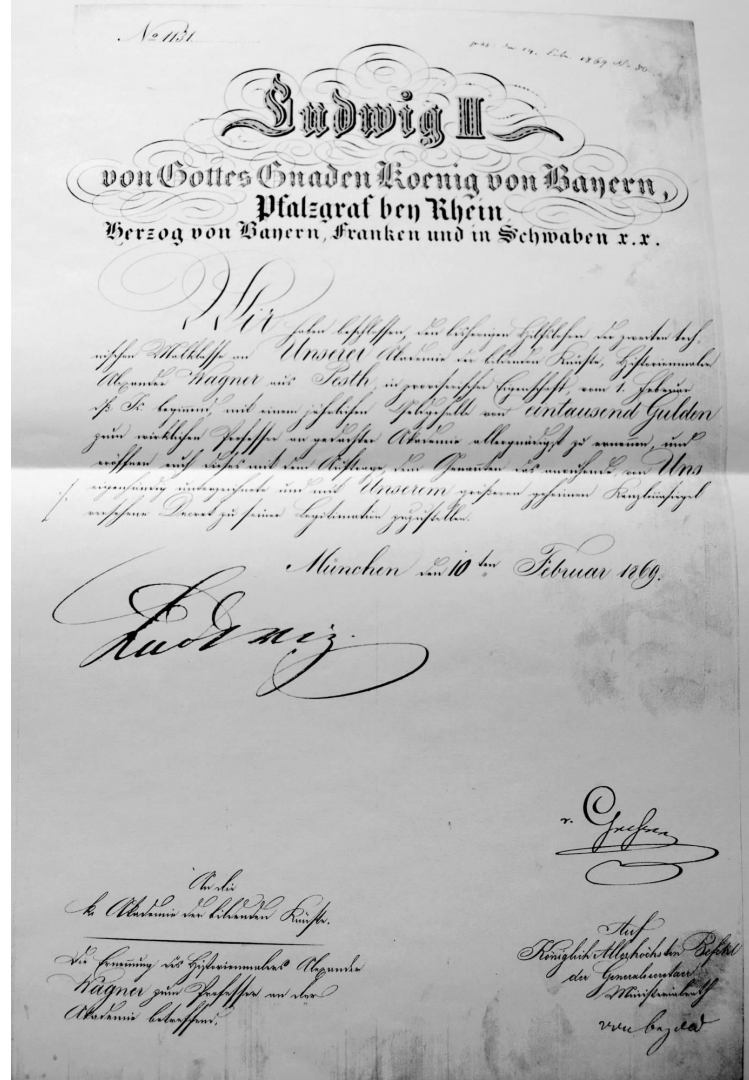 No 1131.
14. Feb. 1869
Ludwig II
von Gottes Gnaden Koenig von Bayern,
Pfalzgraf bey Rhein,
Herzog von Bayern, Franken und in Schwaben x.x.
Wir haben beschlossen, den bisherigen Hilfslehrer der zweiten tech-
nischen Malklasse an Unserer Akademie der bildenden Künste, Historienmaler
Alexander Wagner aus Pesth, in provisorischer Eigenschaft, vom 1. Februar
ds. Js. beginnend, mit einem jährlichen Geldgehalte von eintausend Gulden
zum wirklichen Professor an gedachter Akademie allergnädigst zu ernennen, und
eröffnen euch dieses mit dem Auftrage, dem Genannten das anruhende, von Uns
eigenhändig unterzeichnete und mit Unserem größeren geheimen Kanzleisiegel
versehene Decret zu seiner Legitimation zuzustellen.
München den 10ten Februar 1869.
Ludwig.
v. Gresser
An die
k. Akademie der bildenden Künste.
Die Ernennung des Historienmalers Alexander
Wagner zum Professor an der
Akademie betreffend.
Auf
Königlich Allerhöchsten Befehl
der Generalsecretaer
Ministerialrath
von Bezold